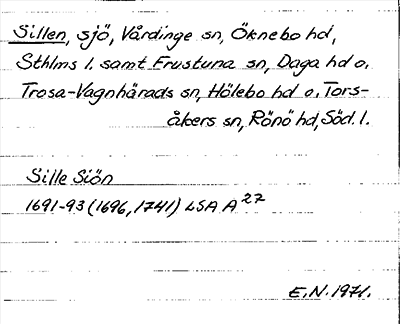 Sillen, sjö, Vårdinge sn, Öknebo hd,
Sthlms l. samt Frustuna sn, Daga hd o.
Trosa-Vagnhärads sn, Hölebo hd o. Tors-
åkers sn, Rönö hd, Söd. l.
Sille Siön
1691-93 (1696, 1741) LSA A 27
E.N. 1971.